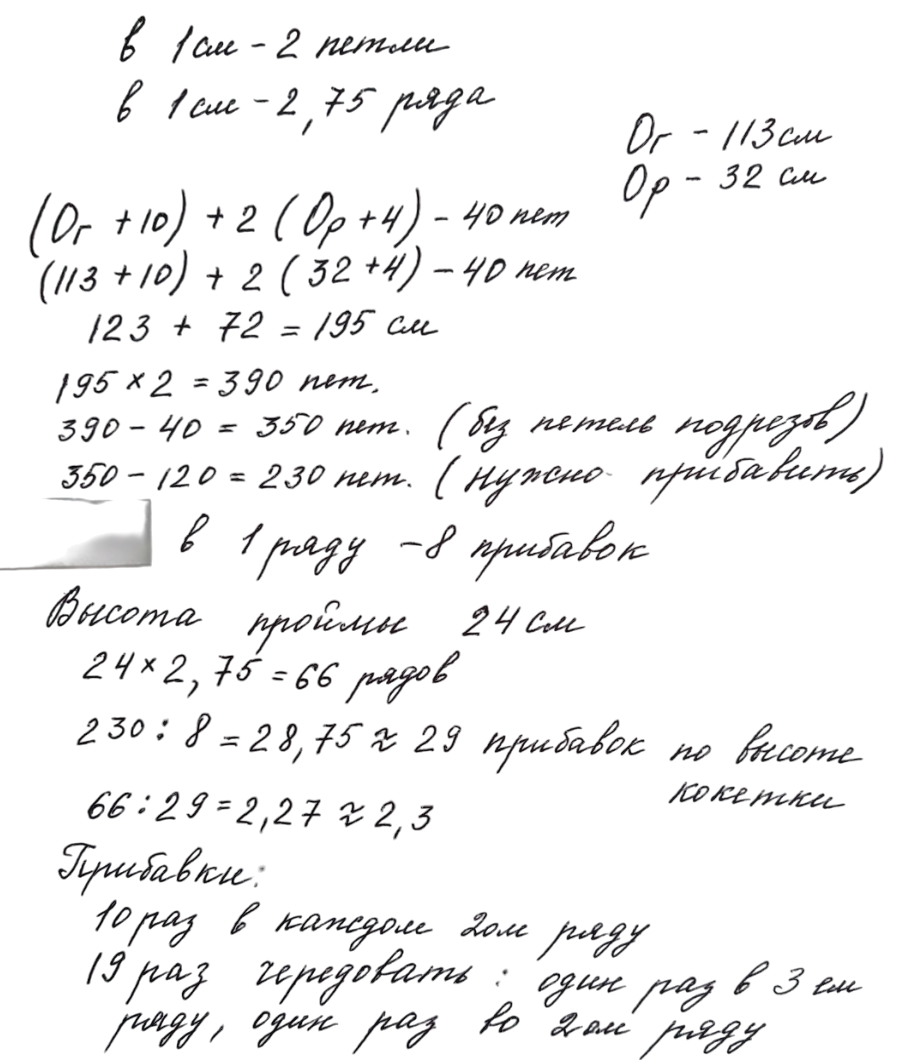 в 1см - 2 петли
в 1см - 2,75 ряда
Ог - 113см
Ор - 32 см
(Ог + 10) + 2 (Ор + 4) - 40 пет
(113 + 10) + 2 (32 + 4) - 40 пет
123 + 72 = 195 см
195 × 2 = 390 пет.
390 - 40 = 350 пет. (без петель подрезов)
350 - 120 = 230 пет. (нужно прибавить)
в 1 ряду - 8 прибавок
Высота проймы 24 см
24 × 2,75 = 66 рядов
230 : 8 = 28,75 ≈ 29 прибавок по высоте
кокетки
66 : 29 = 2,27 ≈ 2,3
Прибавки:
10 раз в каждом 2ом ряду
19 раз чередовать: один раз в 3ем
ряду, один раз во 2ом ряду